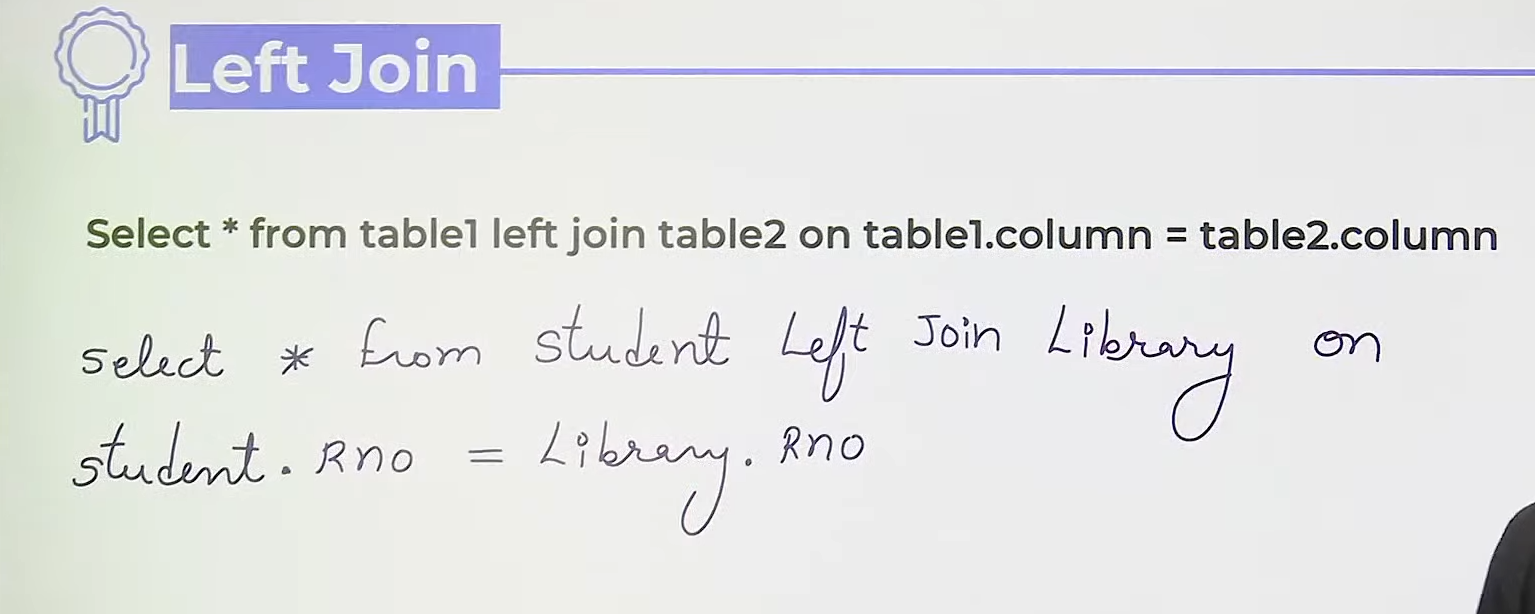 Left Join
Select * from table1 left join table2 on table1.column = table2.column
select * from student Left Join Library on
student. Rno = Library. Rno